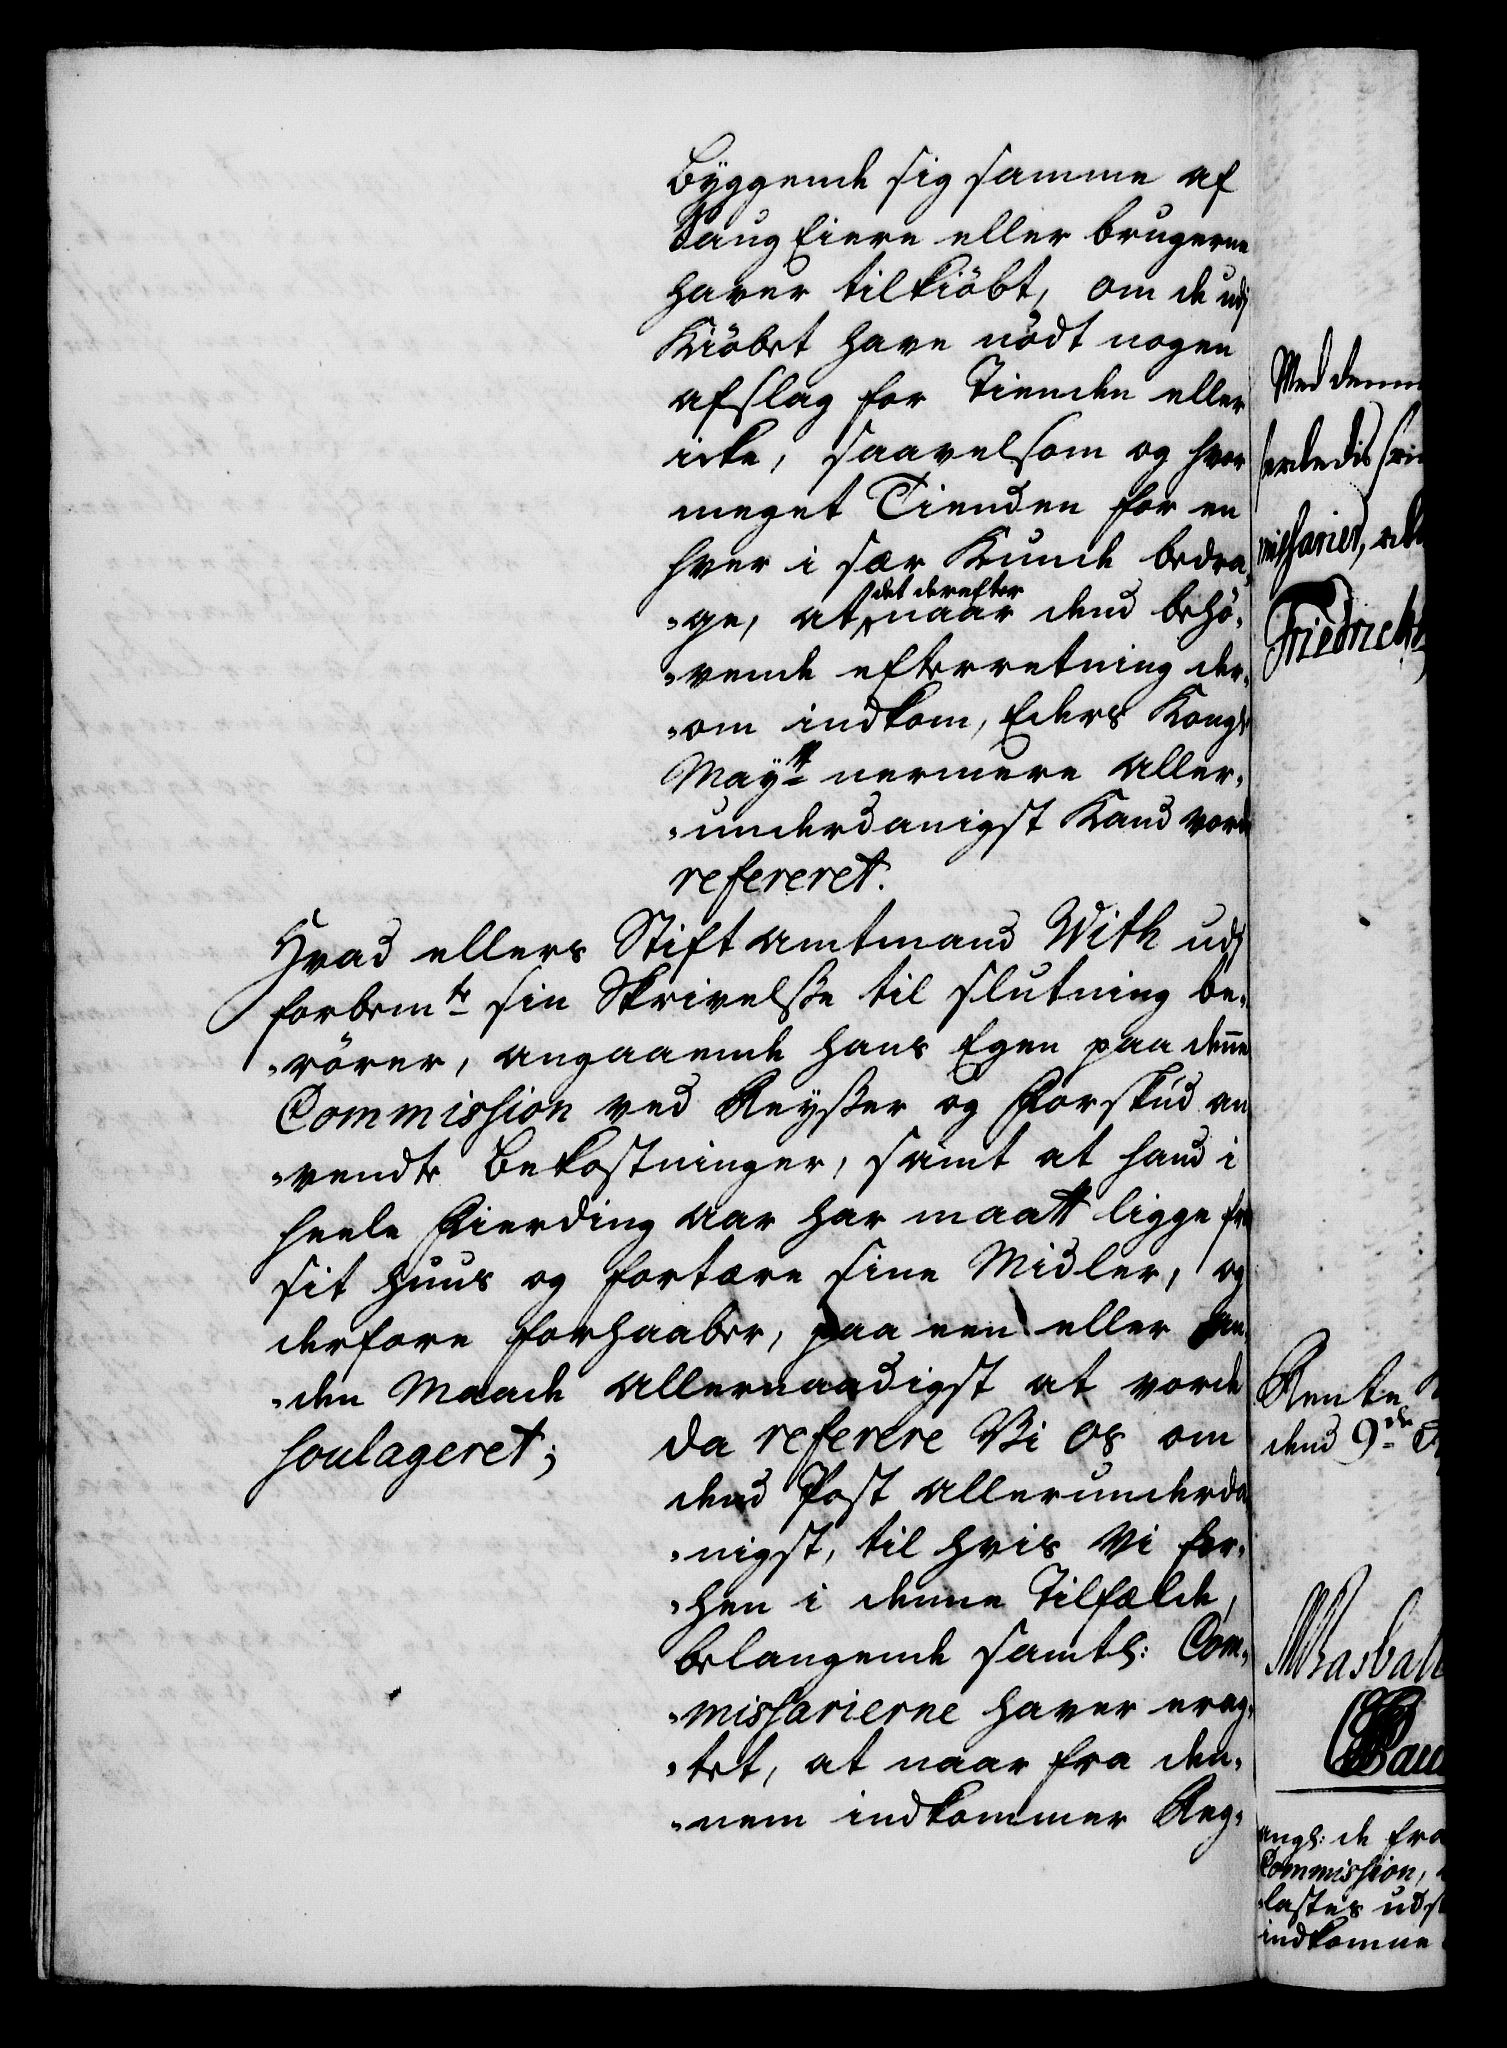 Byggende sig samme af
Saug Eiere eller brugerne
haver tilkiöbt, om de udj
Kiöbet have nödt nogen
afslag for Tienden eller
icke, saavelsom og hvor
meget Tienden for en
hver i sær Kunde bedra„
„ge, at det derefter naar dend behö„
„vende efterretning der„
„om indkom, Eders Kongl:
Mayᵗᵗ nermere aller„
„underdanigst Kand vorde
refereret.
Hvad ellers Stiftamtmand With udj
forbemᵗᵉ sin Skrivelße til slutning be„
„rörer, angaaende hans Egen paa denne
Commission ved Reyßer og Forskud an
„vendte Bekostninger, samt at hand i
heele Fierding Aar har maatt ligge fra
sit Huus og fortære sine Midler, og
derfore forhaaber, paa een eller an„
„den Maade allernaadigst at vorde
soulageret;
da referere Vi os om
dend Post allerunderda
„nigst, til hvis Vi for„
„hen i denne Tilfælde,
belangende samtl: Com„
„missarierne haver erag„
„tet, at naar fra den„
„nem indkommer Reg„
Med denne
missarier,
Friederich
Rente
dend 9ᵈᵉ
angl: de fra
Commission,
„lastes
indkomne